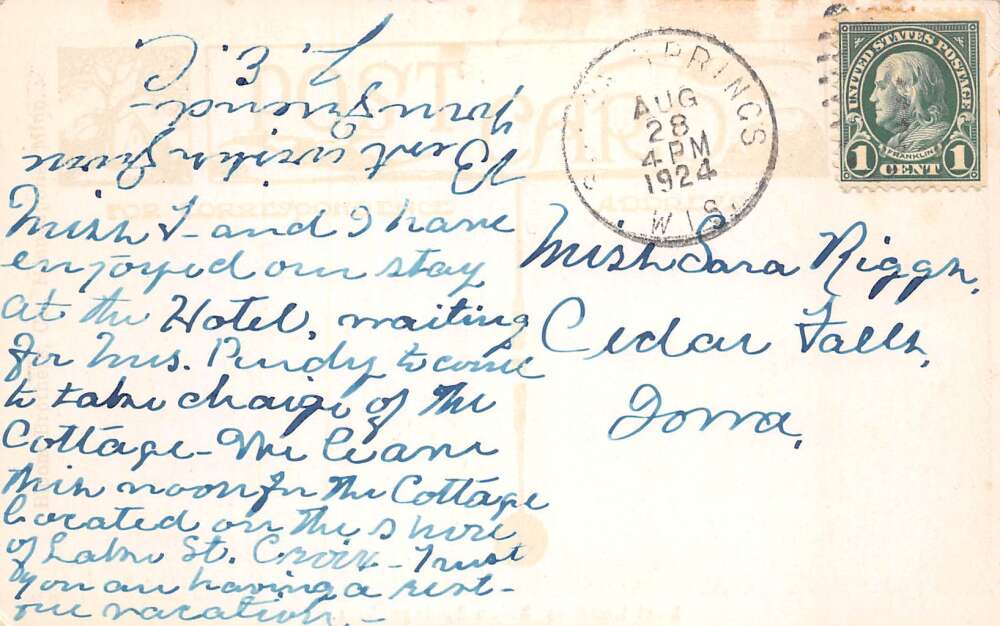 Miss F- and I have
enjoyed our stay
at the Hotel, waiting
for Mrs. Purdy to come
to take charge of the
Cottage - We leave
this noon for the Cottage
located on the shore
of Lake St. Croix - Trust
you are having a rest-
ive vacation. -
Best wishes from
your friend -
L. E. C.
POST CARD
FOR CORRESPONDENCE
ADDRESS
SPRINGS
AUG
28
4 PM
1924
WIS
UNITED STATES POSTAGE
FRANKLIN
1 CENT 1
Miss Sara Riggs,
Cedar Falls,
Iowa,